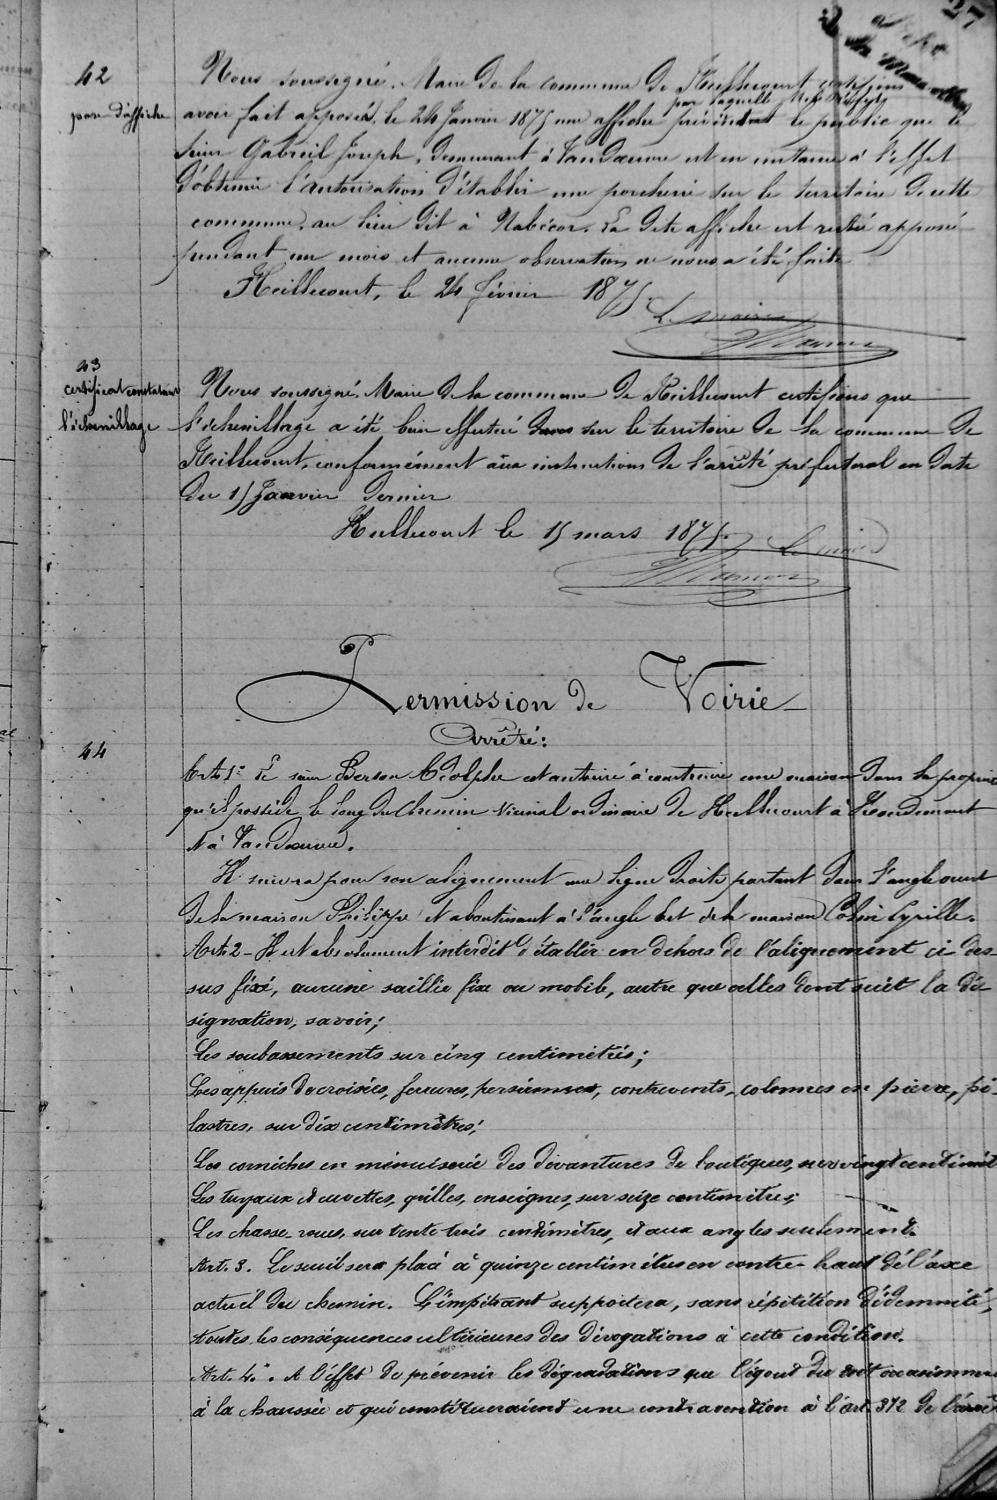 27
42
pose d'affiche
Nous soussigné, Maire de la commune de Heillecourt certifions
avoir fait apposer, le 24 Janvier 1875 une affiche par laquelle le public que le
sieur Gabreil Joseph, demeurant à Vandoeuvre est en instance à l'effet
d'obtenir l'autorisation d'établir une porcherie sur le territoire de cette
commune, au lieu dit à Nabécor. La dite affiche est restée apposé
pendant un mois et aucune observation ne nous a été faite
Heillecourt, le 24 février 1875.
Le maire
43
certificat constatant
l'échenillage
Nous soussigné, Maire de la commune de Heillecourt certifions que
l'échenillage a été bien effectué dans sur le territoire de la commune de
Heillecourt, conformément aux instructions de l'arrêté préfectoral en date
du 15 Janvier dernier
Heillecourt le 15 mars 1875.
Le maire
Permission de Voirie
Arrêté:
44
Art. 1er Le sieur Berson Adolphe est autorisé à construire une maison dans la propriété
qu'il possède le long du Chemin Vicinal ordinaire de Heillecourt à Houdemont
et à Vandoeuvre.
Il suivra pour son alignement une ligne droite partant dans l'angle ouest
de la maison Philippe et aboutissant à l'angle Est de la maison Colin Cyrille.
Art. 2 - Il est absolument interdit d'établir en dehors de l'alignement ci-des-
sus fixé, aucune saillie fixe ou mobile, autre que celles dont suit la dé-
signation, savoir;
Les soubassements sur cinq centimètres;
Les appuis de croisées, ferrures, persiennes, contrevents, colonnes en pierre, pi-
lastres, sur dix centimètres;
Les corniches en menuiserie des devantures de boutiques, sur vingt centimèt
Les tuyaux et cuvettes, grilles, enseignes, sur seize centimètres;
Les chasse-roues, sur trente trois centimètres, et aux angles seulement.
Art. 3. Le seuil sera placé à quinze centimètres en contre-haut de l'axe
actuel du chemin. L'impétrant supportera, sans répétition d'idemnité,
toutes les conséquences ultérieures des dérogations à cette condition.
Art. 4°. A l'effet de prévenir les dégradations que l'égout du toit occasionne
à la chaussée et qui constitueraient une contravention à l'art. 312 de l'arrê